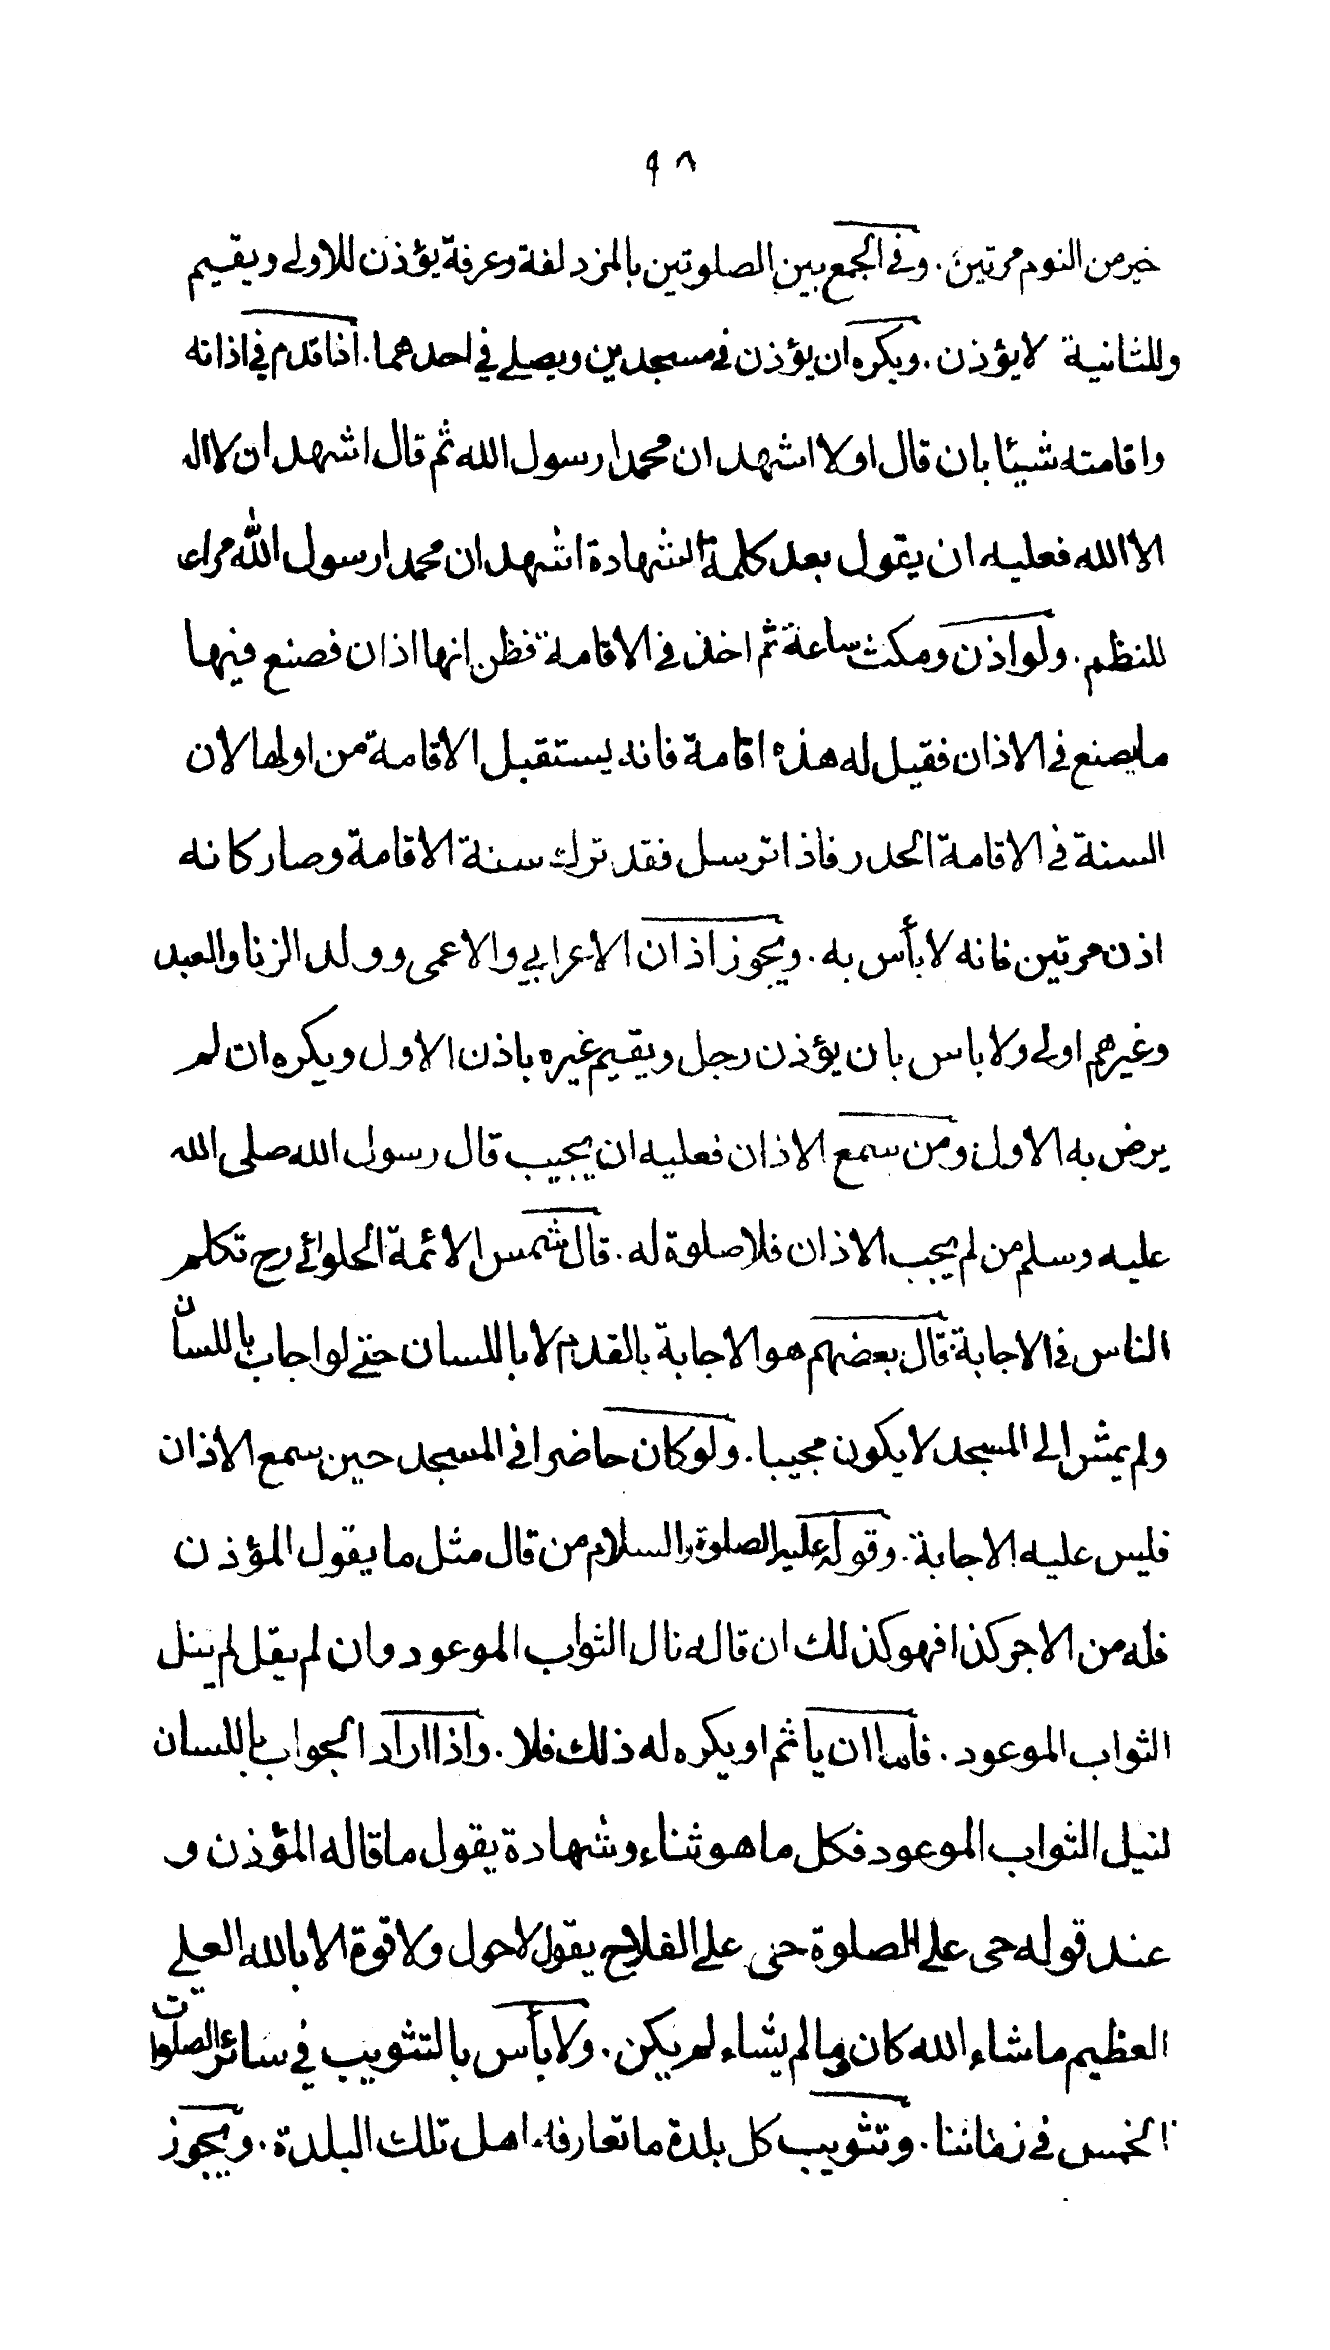 ٩٨
خير من النوم مرتين. وفي الجمع بين الصلوتين بالمزدلفة وعرفة يؤذن للاولى ويقيم
وللثانية لا يؤذن. ويكره ان يؤذن في مسجدين ويصلى في احدهما. اذا قدم في اذانه
واقامته شيئا بان قال اولا اشهد ان محمدا رسول الله ثم قال اشهد ان لا اله
الا الله فعليه ان يقول بعد كلمة الشهادة اشهد ان محمدا رسول الله مراعا
للنظم. ولو اذن ومكث ساعة ثم اخذ في الاقامة فظن انها اذان فصنع فيها
ما يصنع في الاذان فقيل له هذه اقامة فانه يستقبل الاقامة من اولها لان
السنة في الاقامة الحدر فاذا ترسل فقد ترك سنة الاقامة وصار كانه
اذن مرتين فانه لا بأس به. ويجوز اذان الاعرابي والاعمى وولد الزنا والعبد
وغيرهم اولى ولا باس بان يؤذن رجل ويقيم غيره باذن الاول ويكره ان لم
يرض به الاول ومن سمع الاذان فعليه ان يجيب قال رسول الله صلى الله
عليه وسلم من لم يجب الاذان فلا صلوة له. قال شمس الائمة الحلوائي رح تكلم
الناس في الاجابة قال بعضهم هو الاجابة بالقدم لا باللسان حتى لو اجاب باللسان
ولم يمش الى المسجد لا يكون مجيبا. ولو كان حاضرا في المسجد حين سمع الاذان
فليس عليه الاجابة. وقوله عليه الصلوة والسلام من قال مثل ما يقول المؤذن
فله من الاجر كذا فهو كذلك ان قاله نال الثواب الموعود وان لم يقل لم ينل
الثواب الموعود. فاما ان ياثم او يكره له ذلك فلا. واذا اراد الجواب باللسان
لنيل الثواب الموعود فكل ما هو ثناء وشهادة يقول ما قاله المؤذن و
عند قوله حى على الصلوة حى على الفلاح يقول لا حول ولا قوة الا بالله العلى
العظيم ما شاء الله كان وما لم يشاء لم يكن. ولا بأس بالتثويب في سائر الصلوات
الخمس في زماننا. وتثويب كل بلدة ما تعارفه اهل تلك البلدة. ويجوز